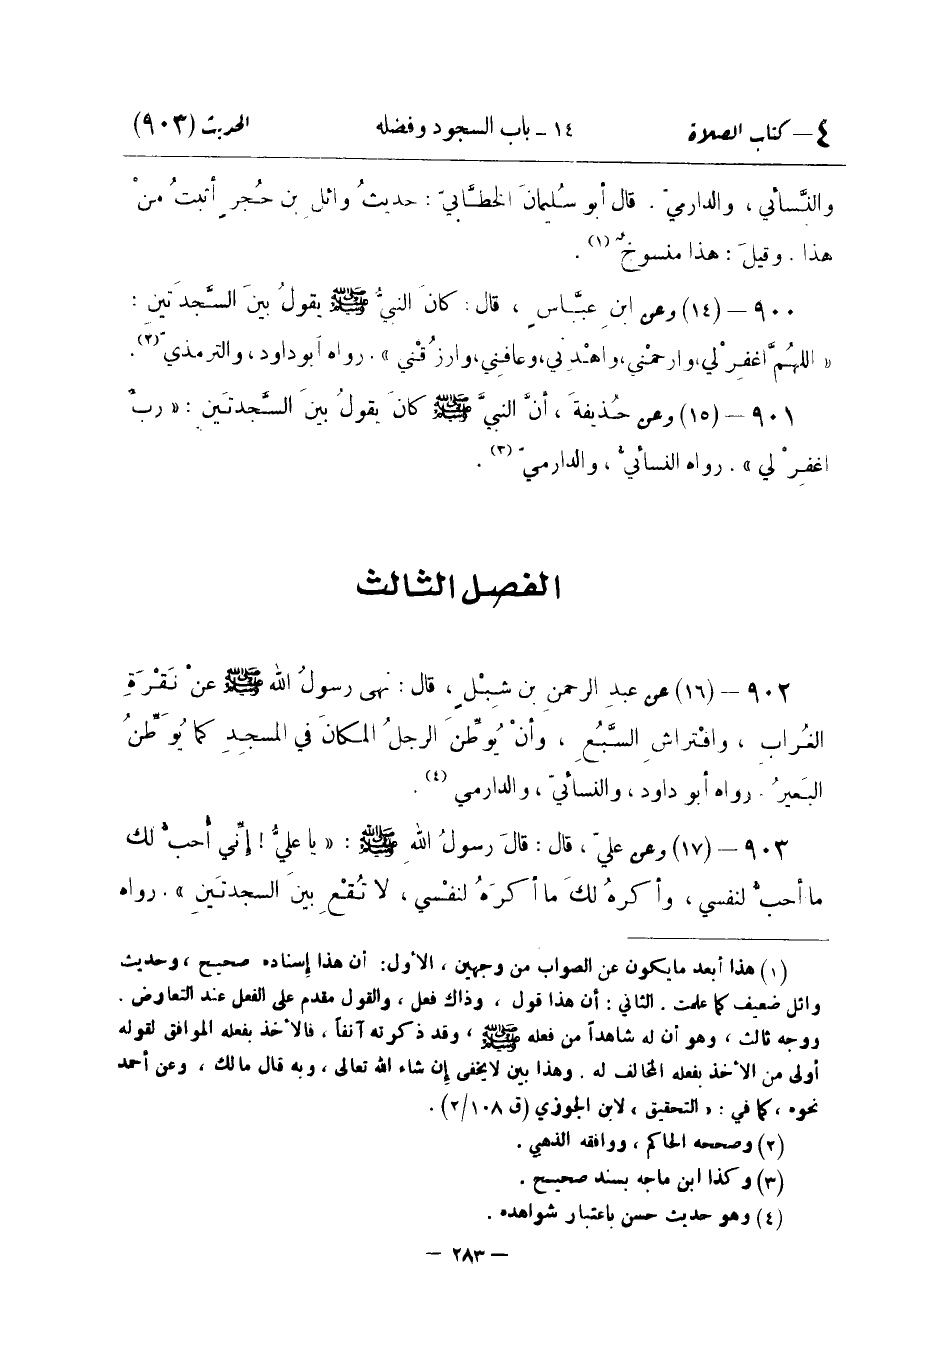 ٤ – كتاب الصلاة ١٤ - باب السجود وفضله الحديث (٩٠٣)
والنَّسائي ، والدارميّ . قال أبو سُليمانَ الخطَّابيّ : حديثُ وائلِ بن حُجرٍ أثبتُ منْ
هذا . وقيلَ : هذا منسوخٌ (١) .
٩٠٠ – (١٤) وعن ابنِ عبَّاسٍ ، قال : كانَ النبيُّ ﷺ يقولُ بينَ السَّجدَتينِ :
« اللهُمَّ اغفِرْ لي،وارحمْني،واهْدِني،وعافِني،وارزُقْني » . رواه أبوداود ، والترمذيّ (٢).
٩٠١ – (١٥) وعن حُذيفةَ ، أنَّ النبيَّ ﷺ كانَ يقولُ بينَ السَّجدتَينِ : « ربِّ
اغفِرْ لي » . رواه النسائيُّ ، والدارميّ (٣) .
الفصل الثالث
٩٠٢ – (١٦) عن عبدِ الرحمنِ بنِ شِبْلٍ ، قال : نهى رسولُ الله ﷺ عنْ نَقْرَةِ
الغُرابِ ، وافْتراشِ السَّبُعِ ، وأنْ يُوَطِّنَ الرجلُ المكانَ في المسجِدِ كما يُوَطِّنُ
البَعيرُ . رواه أبو داود ، والنسائيّ ، والدارمي (٤) .
٩٠٣ – (١٧) وعن عليّ ، قال : قالَ رسولُ اللهِ ﷺ : « يا عليُّ ! إِنِّي أُحبُّ لك
ما أُحبُّ لنفسي ، وأكرهُ لكَ ما أكرَهُ لنفْسي ، لا تُقْعِ بينَ السجدتَينِ » . رواه
(١) هذا أبعد مايكون عن الصواب من وجهين ، الأول: أن هذا إسناده صحيح ، وحديث
وائل ضعيف كما علمت . الثاني : أن هذا قول ، وذاك فعل ، والقول مقدم على الفعل عند التعارض .
ووجه ثالث ، وهو أن له شاهداً من فعله ﷺ ، وقد ذكرته آنفاً ، فالأخذ بفعله الموافق لقوله
أولى من الأخذ بفعله المخالف له . وهذا بين لايخفى إن شاء الله تعالى ، وبه قال مالك ، وعن أحمد
نحوه ، كما في : « التحقيق ، لابن الجوزي (ق ٢/١٠٨) .
(٢) وصححه الحاكم ، ووافقه الذهبي .
(٣) وكذا ابن ماجه بسند صحيح .
(٤) وهو حديث حسن باعتبار شواهده .
– ٢٨٣ –